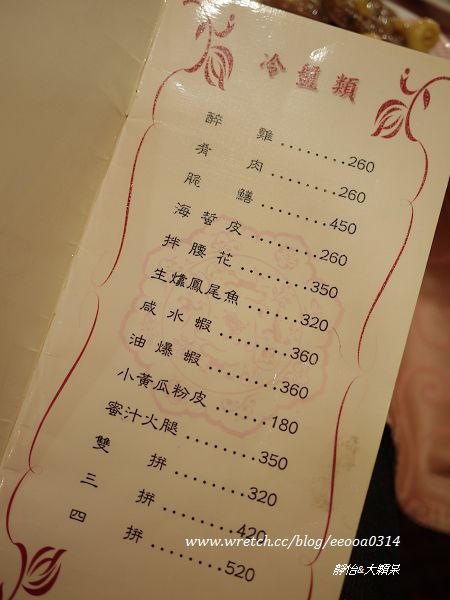 冷盤類
醉雞.........260
肴肉.........260
脆鱔.........450
海蜇皮.........260
拌腰花.........350
生爊鳳尾魚.......320
咸水蝦........360
油爆蝦........360
小黃瓜粉皮......180
蜜汁火腿........350
雙拼........320
三拼........420
四拼.........520
www.wretch.cc/blog/eeooa0314
靜怡&大顆呆